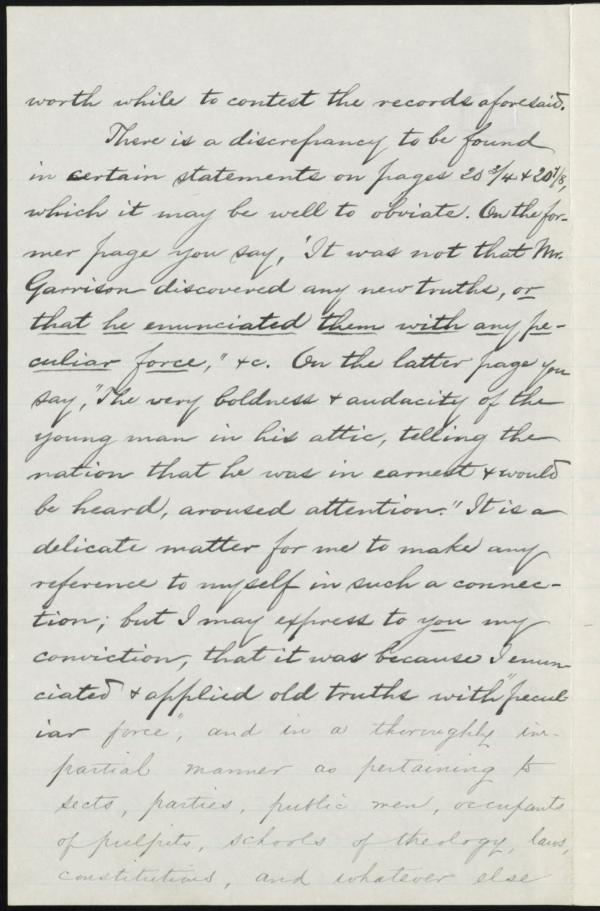 worth while to contest the records aforesaid.
There is a discrepancy to be found
in certain statements on pages 20 3/4 & 20 7/8,
which it may be well to obviate. On the for-
mer page you say, "It was not that Mr.
Garrison discovered any new truths, or
that he enunciated them with any pe-
culiar force," &c. On the latter page you
say, "The very boldness & audacity of the
young man in his attic, telling the
nation that he was in earnest & would
be heard, aroused attention." It is a
delicate matter for me to make any
reference to myself in such a connec-
tion; but I may express to you my
conviction, that it was because I enun-
ciated & applied old truths with "pecul-
iar force", and in a thoroughly im-
partial manner as pertaining to
sects, parties, public men, occupants
of pulpits, schools of theology, laws,
constitutions, and whatever else